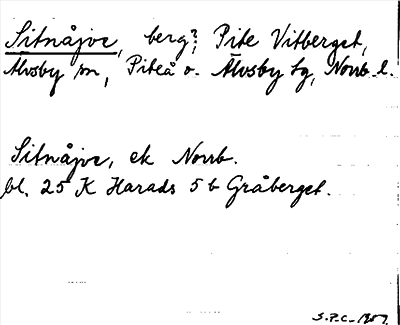 Sitnåjve, berg?, Pite Vitberget,
Älvsby sn, Piteå o. Älvsby tg, Norrb. l.
Sitnåjve, ek Norrb.
bl. 25 K Harads 5 b Gråberget.
S.P.C.